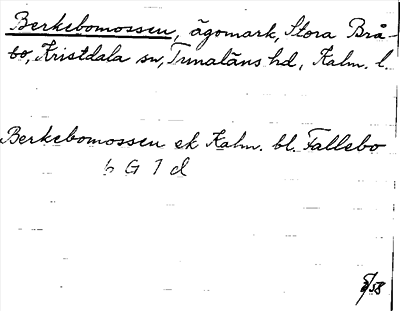 Berkebomossen, ägomark, Stora Brå-
bo, Kristdala sn, Tunaläns hd, Kalm. l.
Berkebomossen ek Kalm. bl. Fallebo
6 G 7 d